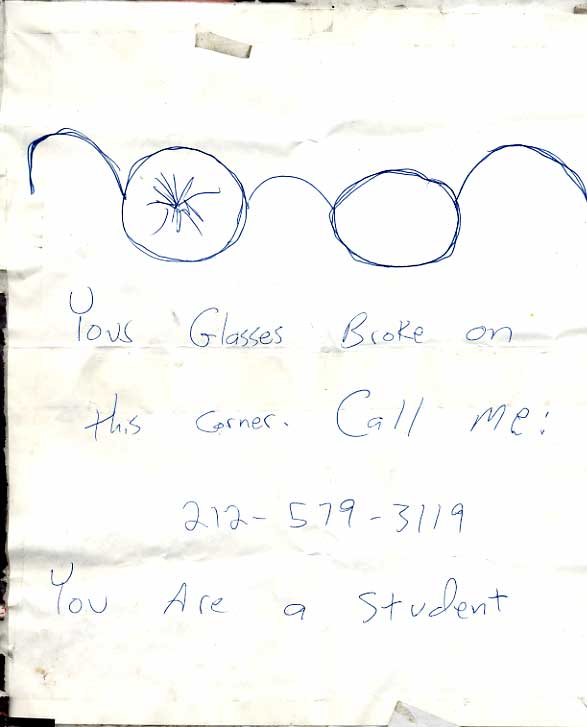 Your Glasses Broke on
this corner. Call me:
212-579-3119
You Are a student